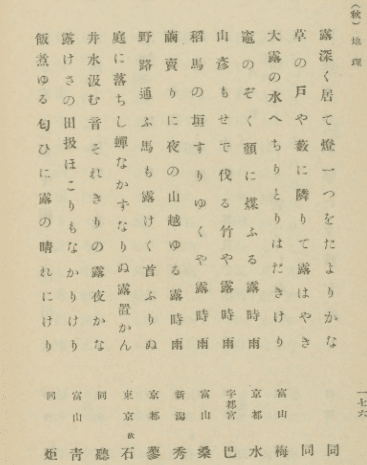 (秋) 地理
一七六
露深く居て燈一つをたよりかな 同
草の戸や藪に隣りて露はやき 同
大露の水へちりとりはだきけり 富山 梅
竈のぞく顔に煤ふる露時雨 京都 水
山彦もせで伐る竹や露時雨 宇都宮 巴
稻馬の垣すりゆくや露時雨 富山 桑
繭賣りに夜の山越ゆる露時雨 新潟 秀
野路通ふ馬も露けく首ふりぬ 京都 蓼
庭に落ちし蟬なかずなりぬ露置かん 東京 石
井水汲む音それきりの露夜かな 同 聽
露けさの田扱ほこりもなかりけり 富山 靑
飯煮ゆる匂ひに露の晴れにけり 同 炬